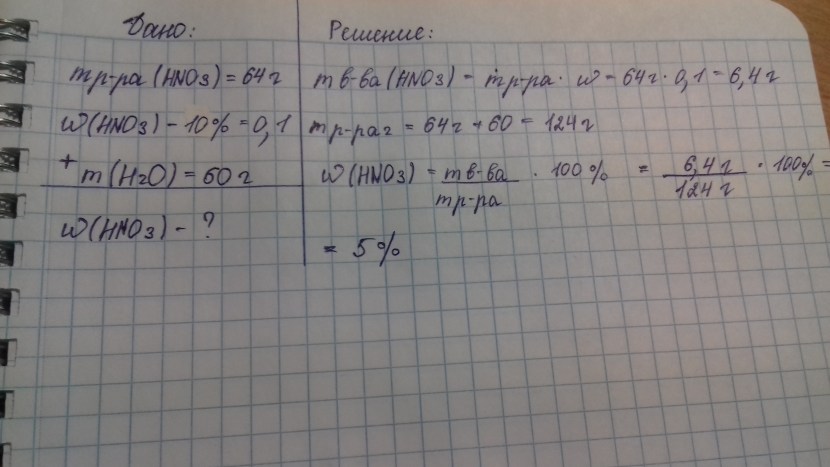 Дано:
mр-ра (HNO3) = 64г
W(HNO3) - 10% = 0,1
+ m(H2O) = 60г
W(HNO3) - ?
Решение:
m в-ва (HNO3) = mр-ра · W = 64г · 0,1 = 6,4г
mр-ра2 = 64г + 60 = 124г
W(HNO3) = mв-ва / mр-ра · 100% = 6,4г / 124г · 100% =
= 5%